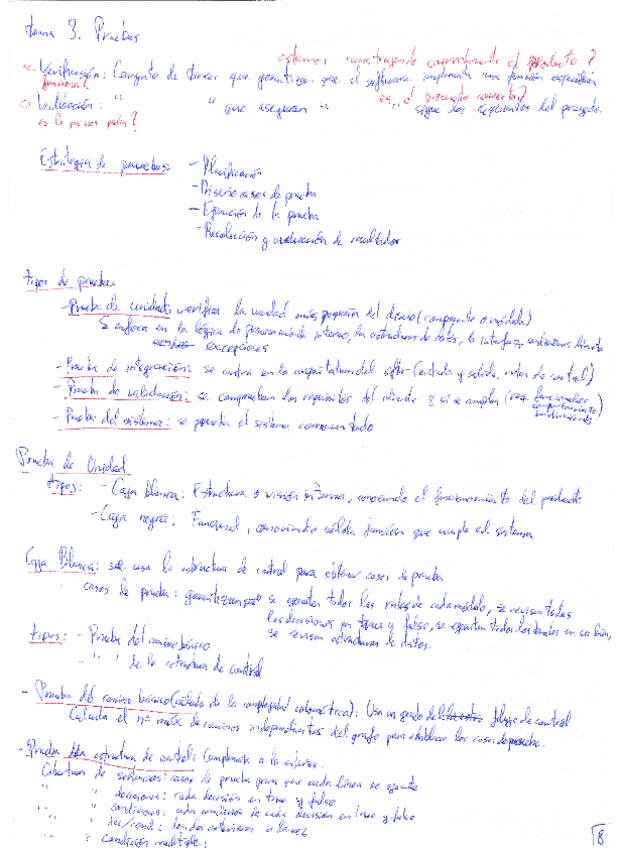 tema 3. Pruebas
estamos construyendo correctamente el producto?
Verificación: Conjunto de tareas que garantizan que el software implementa una función específica
funciona?
Validación: " " que aseguran " sigue los requisitos del proyecto.
es el producto correcto?
es lo que nos piden?
Estrategia de pruebas:
- Planificación
- Diseño casos de prueba
- Ejecución de la prueba
- Recolección y evaluación de resultados
tipos de prueba:
- Prueba de unidad: verifica la unidad más pequeña del diseño (componente o módulo)
Se enfoca en la lógica de procesamiento interno, las estructuras de datos, la interfaz, condiciones límite
excepciones
- Prueba de integración: se centra en la arquitectura del softw (entrada y salida, rutas de control)
- Prueba de validación: se comprueban los requisitos del cliente y si se cumplen (req. funcionales
comportamiento
rendimiento)
- Prueba del sistema: se prueba el sistema como un todo
Prueba de Unidad
tipos: - Caja blanca: Estructura o visión interna, conociendo el funcionamiento del producto
- Caja negra: Funcional, conociendo sólo la función que cumple el sistema
Caja Blanca: se usa la estructura de control para obtener casos de prueba
casos de prueba: garantizan que se ejecutan todas las rutas de cada módulo, se revisan todas
las decisiones en true y false, se ejecutan todos los bucles en su lím,
se revisan estructuras de datos.
tipos: - Prueba del camino básico
- " " de la estructura de control
- Prueba del camino básico (cálculo de la complejidad ciclomática): Usa un grafo del flujo de control
Calcula el nº máx de caminos independientes del grafo para establecer los casos de prueba.
- Prueba de estructura de control: Complementa a la anterior.
Cobertura de sentencias: casos de prueba para que cada línea se ejecute
" " decisiones: cada decisión en true y false
" " condiciones: cada condición de cada decisión en true y false
" " dec/cond: las dos anteriores a la vez
" " Condición múltiple:
8